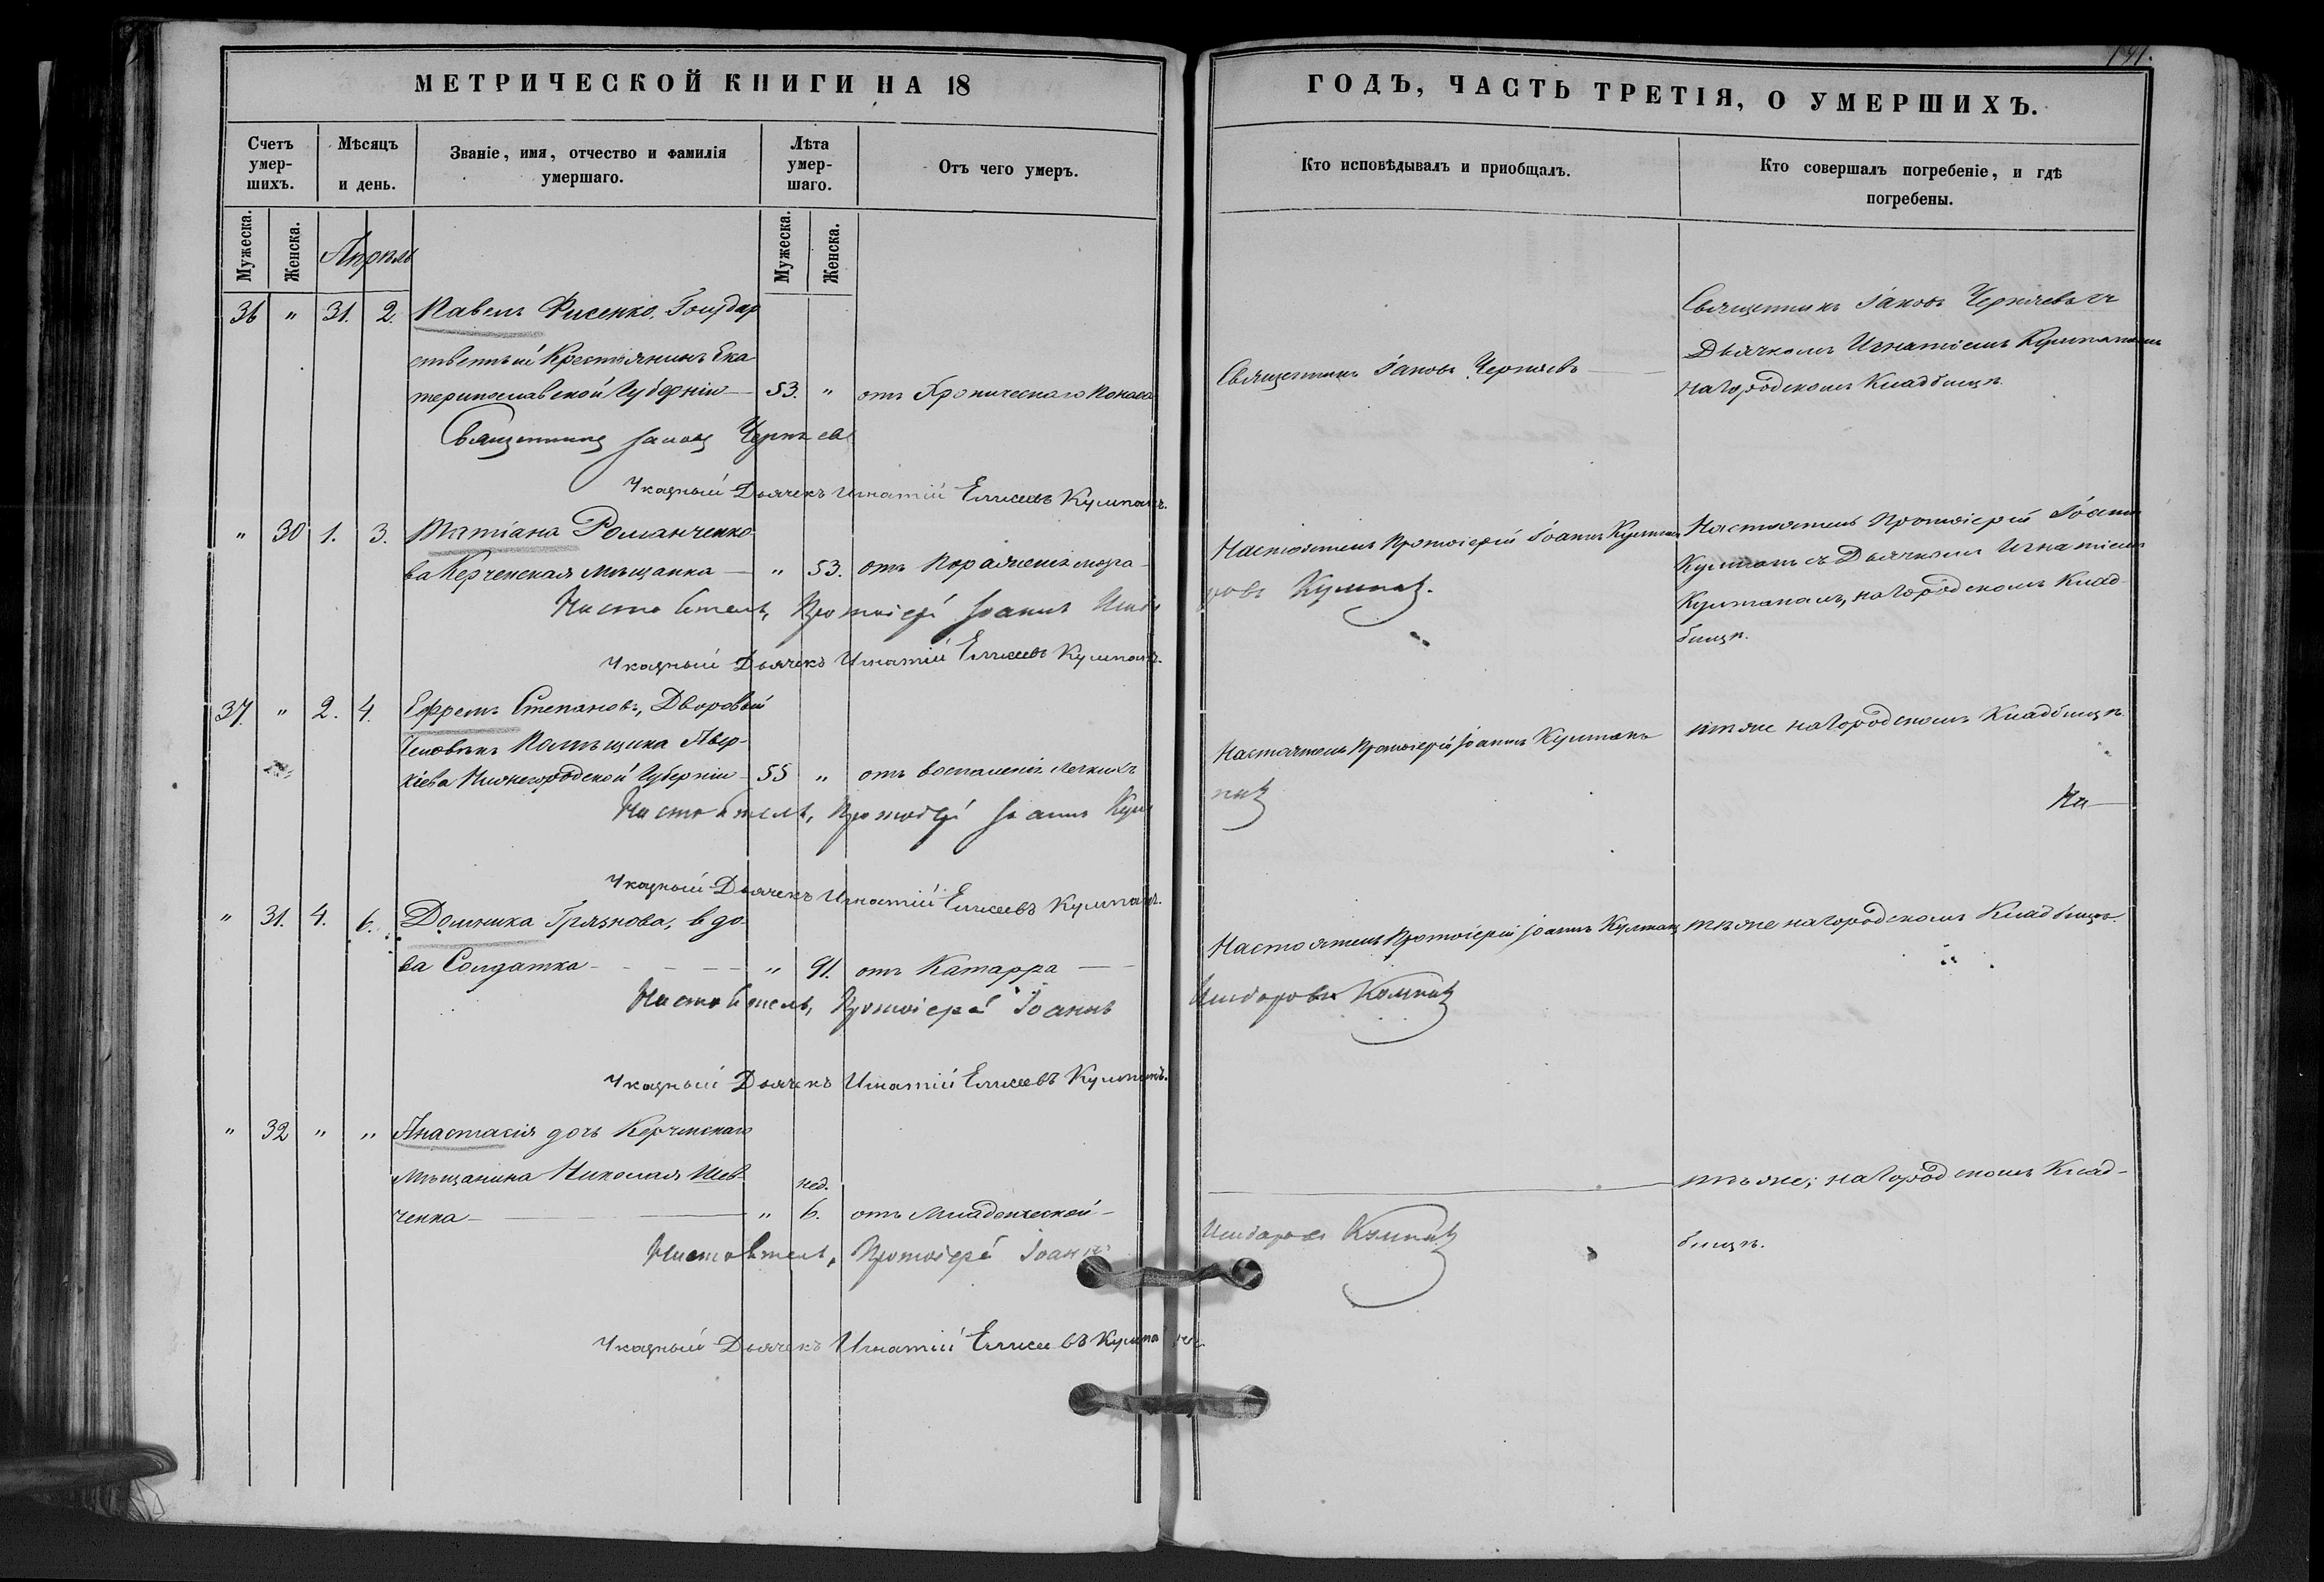 191.
МЕТРИЧЕСКОЙ КНИГИ НА 18
ГОДЪ, ЧАСТЬ ТРЕТІЯ, О УМЕРШИХЪ.
Счетъ умер-шихъ.
Мѣсяцъ и день.
Званіе, имя, отчество и фамилія умершаго.
Лѣта умер-шаго.
Отъ чего умеръ.
Кто исповѣдывалъ и приобщалъ.
Кто совершалъ погребеніе, и гдѣ погребены.
Мужеска.
Женска.
Апрѣль
Мужеска.
Женска.
36 " 31. 2. Павелъ Фисенко, Государ
ственный Крестьянинъ Ека
теринославской Губерніи — 53. " отъ Хроническаго Поноса
Священникъ Іаковъ Черняевъ
Священникъ Іаковъ Черняевъ съ
Дьячкомъ Игнатіемъ Кумпаномъ
на городскомъ Кладбищѣ.
Священникъ Іаковъ Черняевъ
Указный Дьячекъ Игнатій Елисеевъ Кумпанъ.
" 30 1. 3. Татіана Романченко
ва Керченская мѣщанка — " 53. отъ Пораженія мозга
Настоятель Протоіерей Іоаннъ Кумпанъ
Настоятель Протоіерей Іоаннъ
Кумпанъ съ Дьячкомъ Игнатіемъ
Кумпаномъ, на городскомъ Клад-
бищѣ.
Настоятель, Протоіерей Іоаннъ Исидоровъ Кумпанъ.
Указный Дьячекъ Игнатій Елисеевъ Кумпанъ.
37. " 2. 4. Ефремъ Степановъ, Дворовый
Человѣкъ Помѣщика Авер-
кіева Нижегородской Губерніи — 55 " отъ воспаленія легкихъ
Настоятель Протоіерей Іоаннъ Кумпанъ
тѣ же на городскомъ Кладбищѣ.
Настоятель, Протоіерей Іоаннъ Кумпанъ
На—
Указный Дьячекъ Игнатій Елисеевъ Кумпанъ.
" 31. 4. 6. Домника Грязнова, вдо-
ва Солдатка — " 91. отъ Катарра —
Настоятель Протоіерей Іоаннъ Кумпанъ
тѣ же на городскомъ Кладбищѣ.
Настоятель, Протоіерей Іоаннъ Исидоровъ Кумпанъ
Указный Дьячекъ Игнатій Елисеевъ Кумпанъ.
" 32 " " Анастасія дочь Керченскаго
мѣщанина Николая Шев-
ченка — " нед. 6. отъ Младенческой —
тѣ же, на городскомъ Клад-
бищѣ.
Настоятель, Протоіерей Іоаннъ Исидоровъ Кумпанъ
Указный Дьячекъ Игнатій Елисеевъ Кумпанъ.